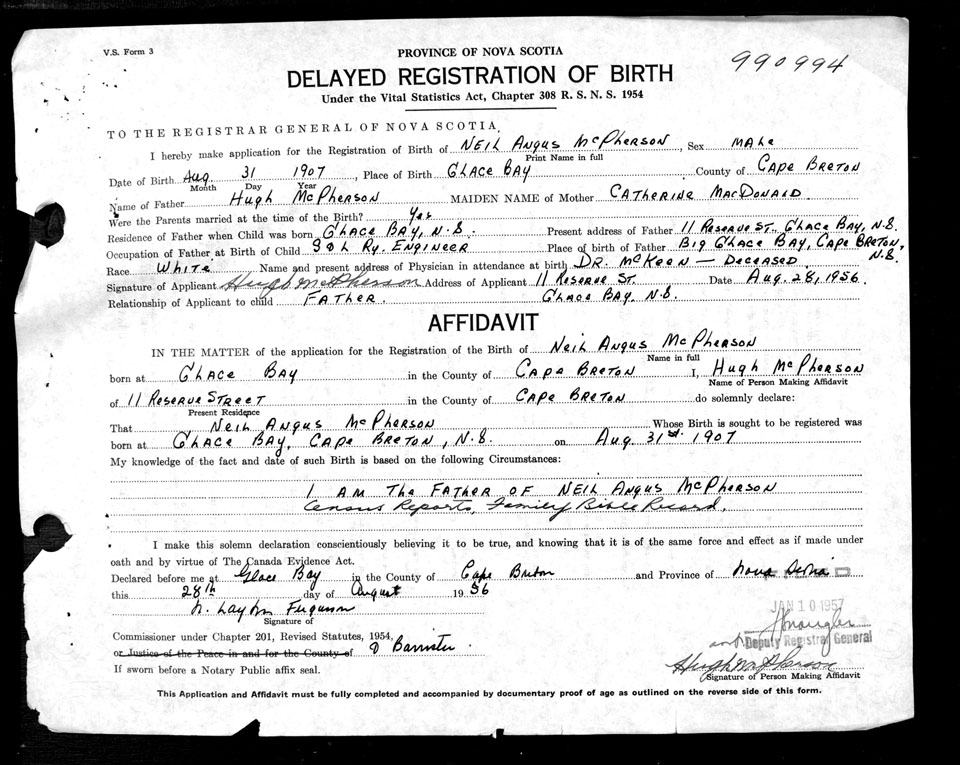 V.S. Form 3
PROVINCE OF NOVA SCOTIA
990994
DELAYED REGISTRATION OF BIRTH
Under the Vital Statistics Act, Chapter 308 R. S. N. S. 1954
TO THE REGISTRAR GENERAL OF NOVA SCOTIA,
I hereby make application for the Registration of Birth of NEIL ANGUS McPHERSON, Sex MALE
Print Name in full
Date of Birth Aug. 31 1907, Place of Birth GLACE BAY County of CAPE BRETON
Month Day Year
Name of Father HUGH McPHERSON MAIDEN NAME of Mother CATHERINE MACDONALD
Were the Parents married at the time of the Birth? Yes
Residence of Father when Child was born GLACE BAY, N.S. Present address of Father 11 RESERVE ST. GLACE BAY, N.S.
Occupation of Father at Birth of Child S & L Ry. ENGINEER Place of birth of Father BIG GLACE BAY, CAPE BRETON, N.S.
Race WHITE Name and present address of Physician in attendance at birth DR. McKEEN — DECEASED
Signature of Applicant Hugh McPherson Address of Applicant 11 RESERVE ST. Date AUG. 28, 1956
Relationship of Applicant to child FATHER GLACE BAY, N.S.
AFFIDAVIT
IN THE MATTER of the application for the Registration of the Birth of NEIL ANGUS McPHERSON
Name in full
born at GLACE BAY in the County of CAPE BRETON I, HUGH McPHERSON
Name of Person Making Affidavit
of 11 RESERVE STREET in the County of CAPE BRETON do solemnly declare:
Present Residence
That NEIL ANGUS McPHERSON Whose Birth is sought to be registered was
born at GLACE BAY, CAPE BRETON, N.S. on AUG. 31st. 1907
My knowledge of the fact and date of such Birth is based on the following Circumstances:
I AM THE FATHER OF NEIL ANGUS McPHERSON
Census Reports, Family Bible Record.
I make this solemn declaration conscientiously believing it to be true, and knowing that it is of the same force and effect as if made under
oath and by virtue of The Canada Evidence Act.
Declared before me at Glace Bay in the County of Cape Breton and Province of Nova Scotia
this 28th day of August 1956
N. Layton Ferguson
Signature of
JAN 10 1957
Commissioner under Chapter 201, Revised Statutes, 1954,
and Deputy Registrar General
or Justice of the Peace in and for the County of Barrister
Hugh McPherson
If sworn before a Notary Public affix seal.
Signature of Person Making Affidavit
This Application and Affidavit must be fully completed and accompanied by documentary proof of age as outlined on the reverse side of this form.